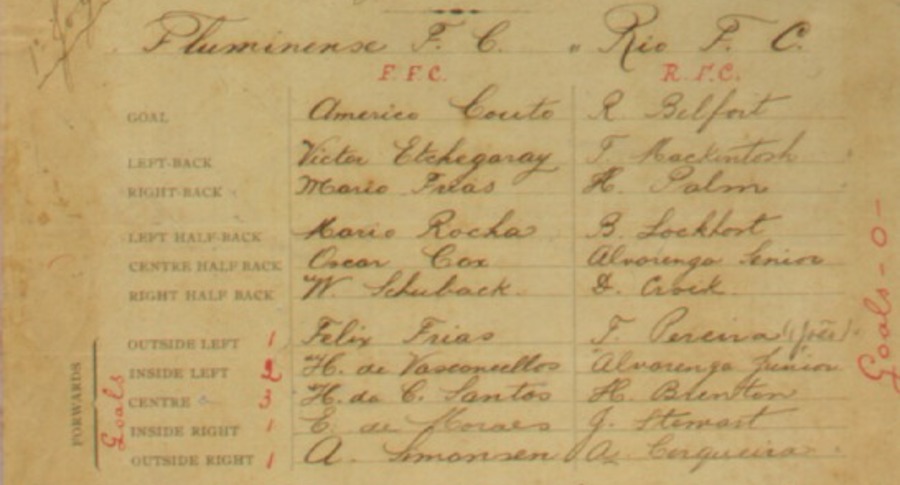 Fluminense F. C. " Rio F. C.
F.F.C. R.F.C.
GOAL Americo Couto R. Belfort
LEFT-BACK Victor Etchegaray T. Mackintosh
RIGHT-BACK Mario Frias H. Palm
LEFT HALF-BACK Mario Rocha B. Lockhort
CENTRE HALF BACK Oscar Cox Alvarenga Senior
RIGHT HALF BACK W. Schuback D. Croik
OUTSIDE LEFT 1 Felix Frias T. Pereira (João)
INSIDE LEFT 2 H. de Vasconcellos Alvarenga Junior
CENTRE 3 H. da C. Santos H. Brenton
INSIDE RIGHT 1 E. de Moraes J. Stewart
OUTSIDE RIGHT 1 A. Simonsen A. Cerqueira
FORWARDS
Goals
Goals - 0 -